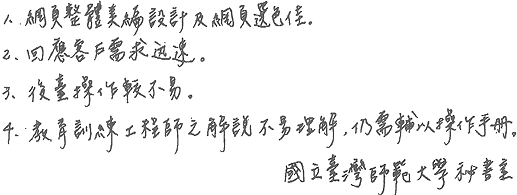 1、網頁整體美編設計及網頁選色佳。
2、回應客戶需求迅速。
3、後臺操作較不易。
4、教育訓練工程師之解說不易理解，仍需輔以操作手冊。
國立臺灣師範大學秘書室